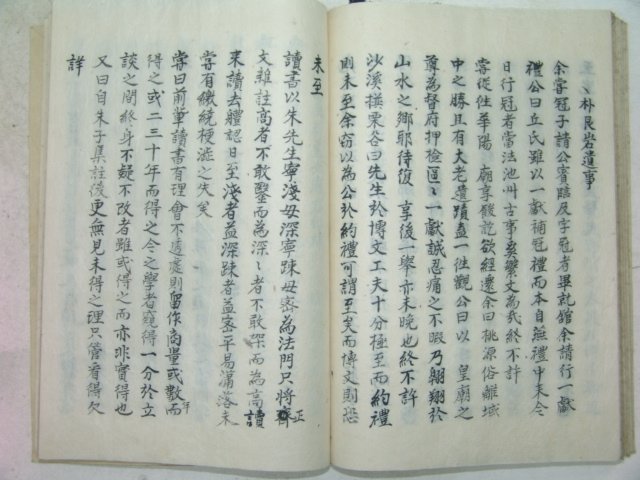 朴艮岩遺事
余嘗冠子請公賓臨及字冠者畢就館余請行一獻
禮公曰丘氏雖以一獻補冠禮而本自無禮中末今
日行冠者當法池州古事奚繁文為哉終不許
嘗從仕華陽廟享餕訖欲經還余曰桃源俗離域
中之勝且有大老遺躅盍一徃觀公曰以 皇廟之
尊為督府押檢區〻一獻誠忍痛之不暇乃翱翔於
山水之鄉耶待復享後一舉亦未晩也終不許
沙溪撰栗谷曰先生於博文工夫十分極至而約禮
則未至余窃以為公於約禮可謂至矣而博文則恐
未至
讀書以朱先生寧淺毋深寧踈毋密為法門只將正
文雜註高者不敢鑿而為深〻者不敢架而為高讀
來讀去體認日至淺者益深踈者益密平易滿落未
嘗有繳繞梗澁之失矣
嘗曰前輩讀書有理會不透處則留作商量或數年而
得之或二三十年而得之今之學者窺得一分於立
談之間終身不疑不改者雖或得之而亦非實得也
又曰自朱子集註後更無見未得之理只管看得欠
詳